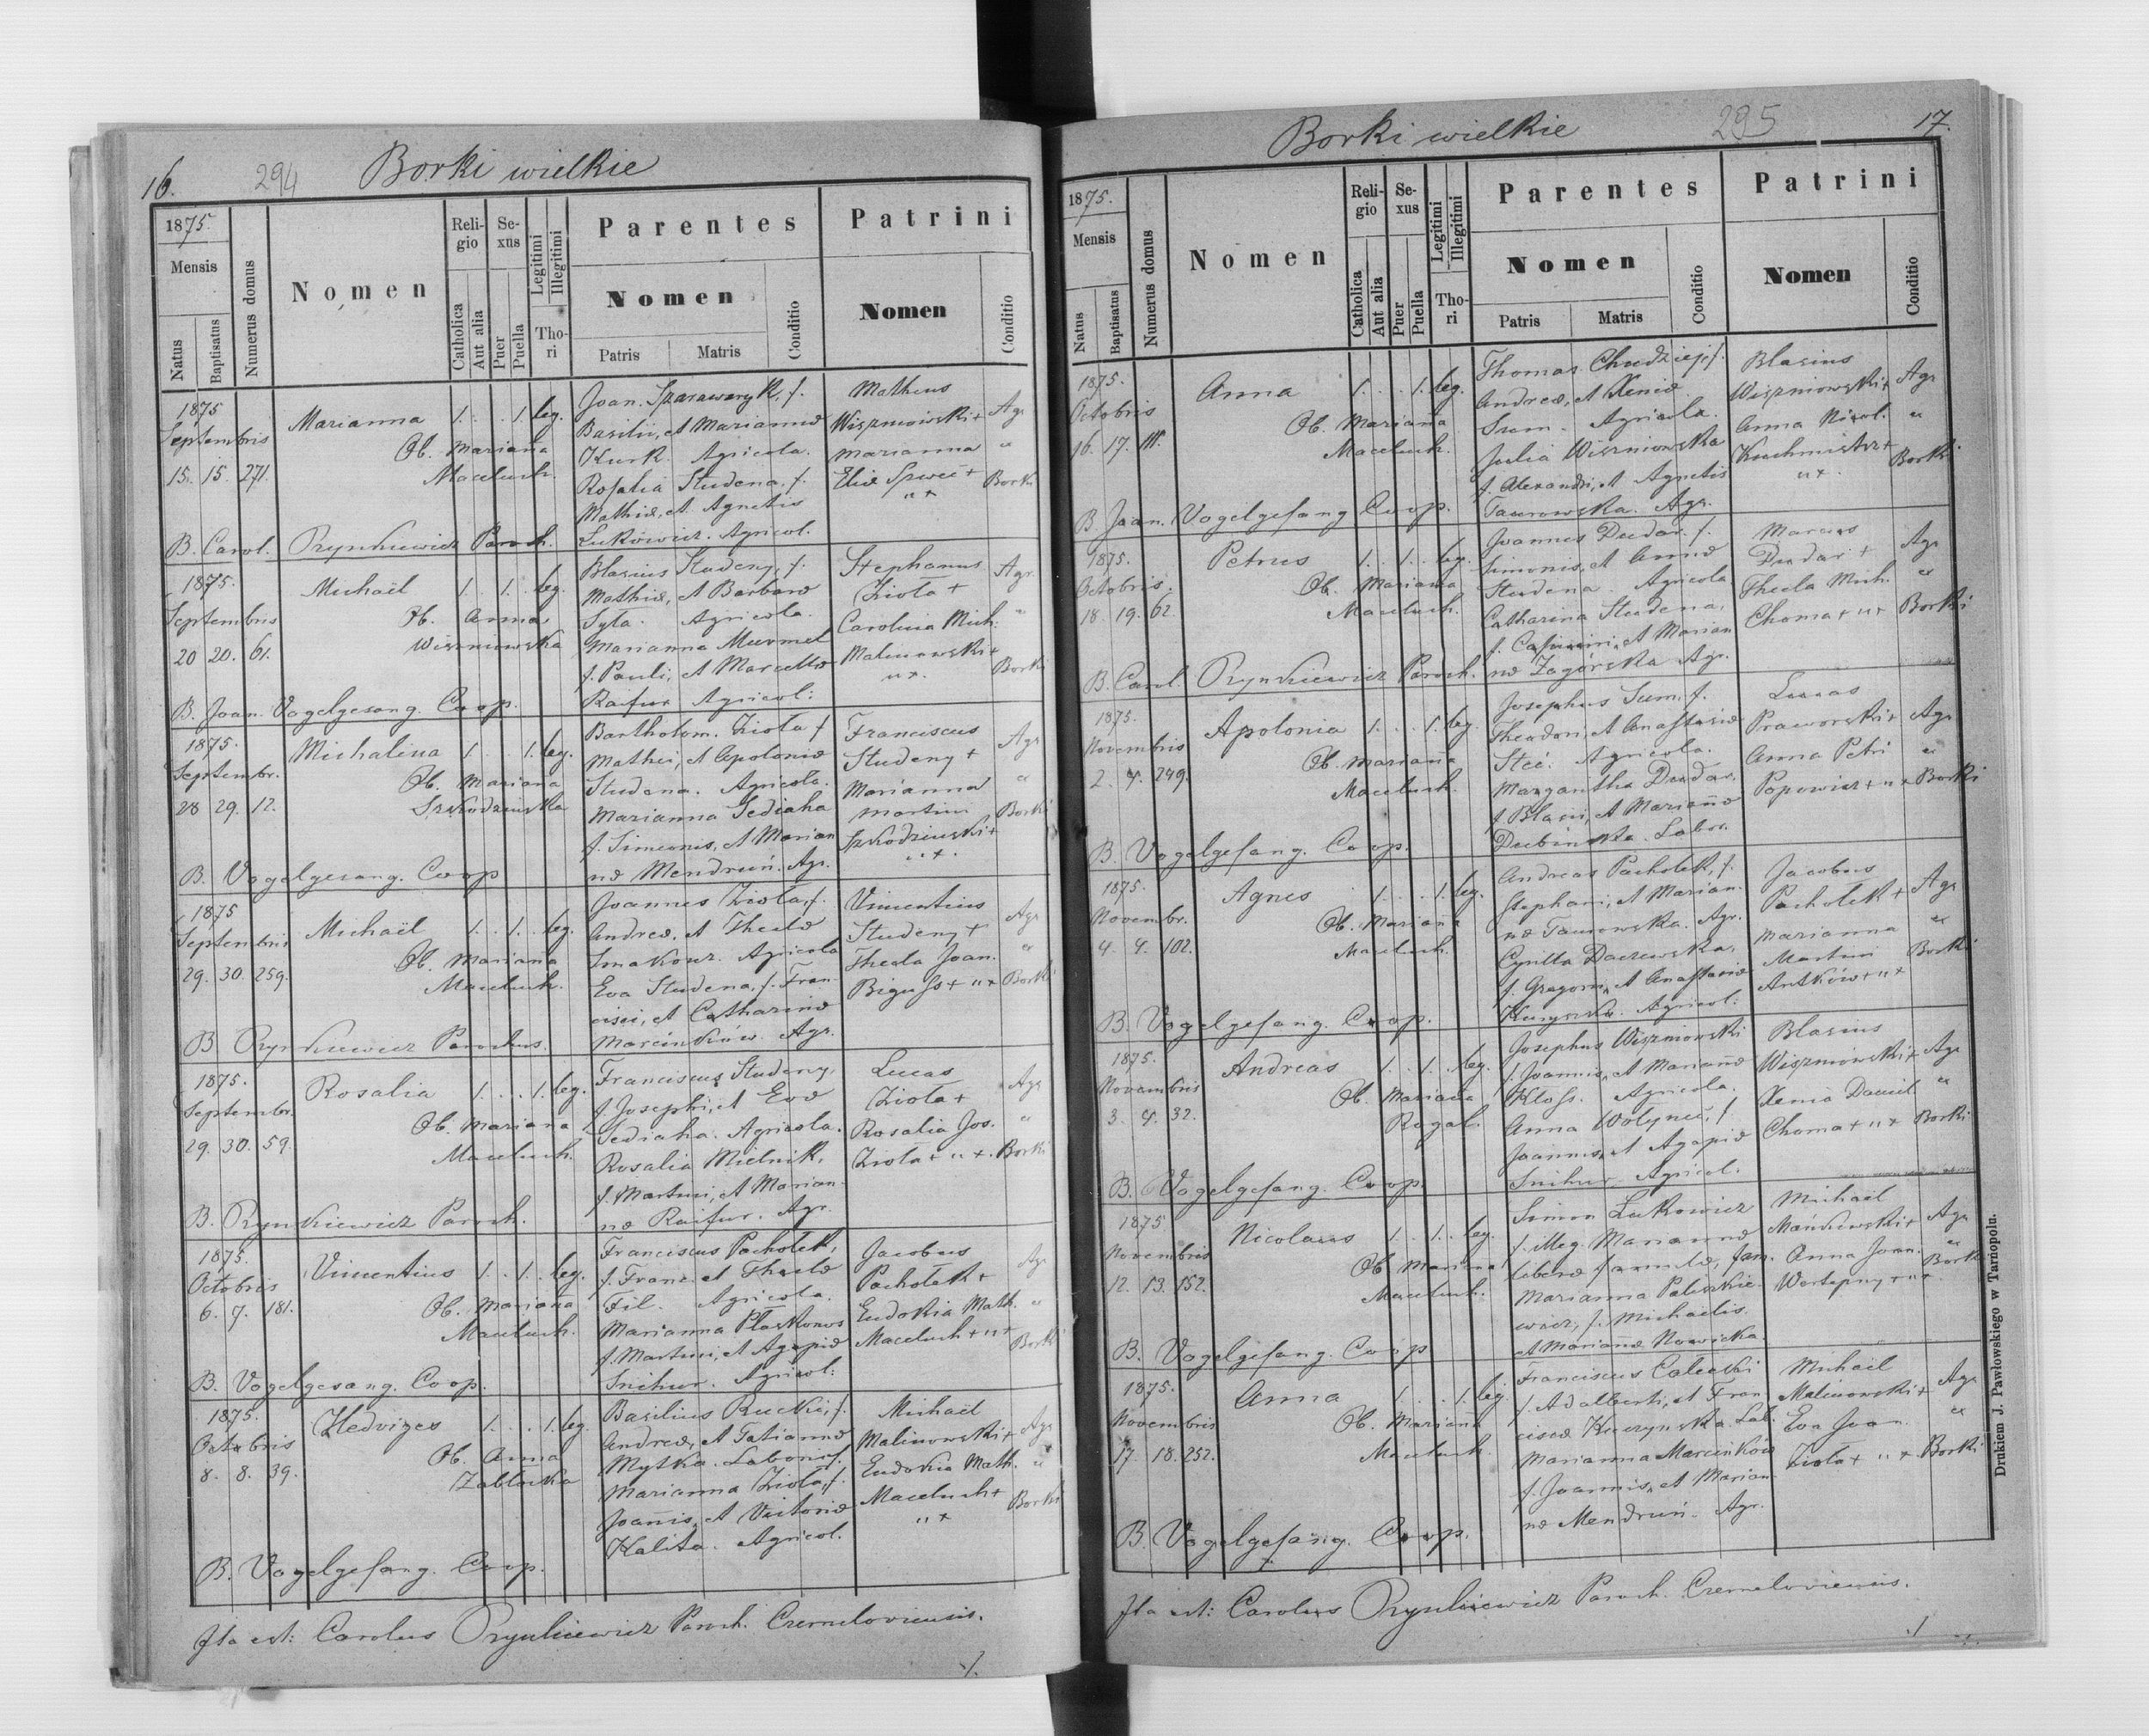 16. 294 Borki wielkie
1875.
Mensis
Natus
Baptisatus
Numerus domus
Nomen
Religio
Catholica
Aut alia
Sexus
Puer
Puella
Legitimi
Illegitimi
Thori
Parentes
Nomen
Patris
Matris
Conditio
Patrini
Nomen
Conditio
1875
Septembris
15. 15. 271.
Marianna 1. . . 1. leg.
Ob. Mariana
Maceluch.
Joan. Szarawaryk, f.
Basilii, et Marianna
Kurk. Agricola.
Rosalia Studena, f.
Mathiæ, et Agnetis
Lukowicz. Agricol.
Matheus
Wiszniowski +
Marianna
Eliæ +
" +
Agr
"
Borki
B. Carol. Rynkiewicz Paroch.
1875.
Septembris
20 20. 61.
Michaël 1. . 1. . leg.
Ob. Anna
Wiszniowska
Blasius Studeny, f.
Mathiæ, et Barbaræ
Syta. Agricola.
Marianna Murmel
f. Pauli, et Marcellæ
Raifur Agricol:
Stephanus
Ziola +
Carolina Mich.
Malinowski +
" +.
Agr.
"
Borki
B. Joan. Vogelgesang. Coop.
1875.
Septembr.
28 29. 12.
Michalina 1. . . 1. leg.
Ob. Mariana
Szkodzinska
Bartholom. Ziola f
Mathei, et Apoloniæ
Studena. Agricola.
Marianna Sediaha
f. Simeonis, et Marian
næ Mendruń. Agr.
Franciscus
Studeny +
Marianna
Martini
Szkodzinski +
" +.
Agr
"
Borki
B. Vogelgesang. Coop
1875
Septembris
29. 30. 259.
Michaël 1. . 1. . leg.
Ob. Mariana
Maceluch.
Joannes Ziola, f.
Andreæ, et Theclæ
Smakowz. Agricola
Eva Studena, f. Fran
cisci, et Catharinæ
Marcinków. Agr.
Vincentius
Studeny +
Thecla Joan.
Beguss + " +
Agr
"
Borki
B. Rynkiewicz Parochus.
1875.
Septembr.
29. 30. 59.
Rosalia 1. . . 1. leg.
Ob. Mariana
Maceluch.
Franciscus Studeny,
f. Josephi, et Evæ
Sediaha. Agricola.
Rosalia Mielnik,
f. Martini, et Marian
næ Raifur. Agr.
Lucas
Ziola +
Rosalia Jos.
Ziola + " +.
Agr
"
Borki
B. Rynkiewicz Paroch.
1875.
Octobris
6. 7. 181.
Vincentius 1. . 1. . leg.
Ob. Mariana
Maceluch.
Franciscus Pacholek,
f. Franc. et Theclæ
Fil. Agricola.
Marianna
f. Martini, et Agapiæ
Snihur. Agricol:
Jacobus
Pacholek +
Eudokia Math.
Maceluch + " +
Agr
"
Borki
B. Vogelgesang. Coop.
1875.
Octobris
8. 8. 39.
Hedviges 1. . . 1. leg
Ob. Anna
Zablocka
Basilius Rucki, f.
Andreæ, et Tatiannæ
Mytka. Laborios.
Marianna Ziola, f.
Joannis, et Victoriæ
Kalita. Agricol.
Michaël
Malinowski +
Eudokia Math.
Maceluch +
" +
Agr
"
Borki
B. Vogelgesang. Coop.
Ita est: Carolus Rynkiewicz Paroch. Czerneloviensis.
./.
Borki wielkie 295 17.
1875.
Mensis
Natus
Baptisatus
Numerus domus
Nomen
Religio
Catholica
Aut alia
Sexus
Puer
Puella
Legitimi
Illegitimi
Thori
Parentes
Nomen
Patris
Matris
Conditio
Patrini
Nomen
Conditio
1875.
Octobris
16. 17. 111.
Anna 1. . . 1. leg.
Ob. Mariana
Maceluch.
Thomas Chudziej, f.
Andreæ, et Xeniæ
Szum. Agricola.
Julia Wiszniowska
f. Alexandri, et Agnetis
Taurowska. Agr.
Blasius
Wiszniowski +
Anna Nicol.
Kuchmistrz +
" +.
Agr
"
Borki
B. Joan. Vogelgesang Coop.
1875.
Octobris.
18. 19. 62.
Petrus 1. . 1. . leg.
Ob. Mariana
Maceluch.
Joannes Dudar, f.
Simonis, et Annæ
Studena. Agricola
Catharina Studena,
f. Casimiri, et Marian
næ Zagórska Agr.
Marcus
Dudar +
Thecla Mich.
Choma + " +
Agr
"
Borki
B. Carol. Rynkiewicz Paroch.
1875.
Novembris
2. 4. 249.
Apolonia 1. . . 1. leg.
Ob. Mariana
Maceluch.
Josephus Szum, f.
Theodori, et Anastasiæ
Agricola.
Margaritha Dudar,
f. Blasii, et Mariannæ
Dubinska. Labor.
Lucas
Praworski +
Anna Petri
Popowicz + " +
Agr
"
Borki
B. Vogelgesang. Coop.
1875.
Novembr.
4. 4. 102.
Agnes 1. . . 1. leg.
Ob. Mariana
Maceluch.
Andreas Pacholek, f.
Stephani, et Marian
næ Taurowska. Agr.
Cyrilla Daczewska,
f. Gregorii, et Anastasiæ
Agricol.
Jacobus
Pacholek +
Marianna
Martini
Antków + " +
Agr
"
Borki
B. Vogelgesang. Coop.
1875.
Novembris
3. 4. 32.
Andreas 1. . 1. . leg.
Ob. Mariana
Rogal.
Josephus Wiszniowski
f. Joannis, et Mariannæ
Kloss. Agricola.
Anna Wolyneć, f.
Joannis, et Agapiæ
Snihur. Agricol.
Blasius
Wiszniowski +
Xenia Daniel.
Choma + " +
Agr
"
Borki
B. Vogelgesang. Coop.
1875
Novembris
12. 13. 152.
Nicolaus 1. . 1. . leg.
Ob. Mariana
Maceluch.
Simon Lukowicz
f. illeg. Mariannæ
liberæ famulæ, fam.
Marianna Paliszkie
wicz, f. Michaelis.
et Mariannæ Nowicka.
Michaël
Mańkowski +
Anna Joan.
Wertepny + " +.
Agr
"
Borki
B. Vogelgesang. Coop
1875.
Novembris
17. 18. 252.
Anna 1. . . 1. leg.
Ob. Mariana
Maceluch.
Franciscus Calecki
f. Adalberti, et Fran
ciscæ Kuczynska. Lab.
Marianna Marcinków
f. Joannis, et Marian
næ Mendruń. Agr.
Michaël
Malinowski +
Eva Joan.
Ziola + " +
Agr
"
Borki
B. Vogelgesang. Coop.
Ita est: Carolus Rynkiewicz Paroch. Czerneloviensis.
./.
Drukiem J. Pawłowskiego w Tarnopolu.